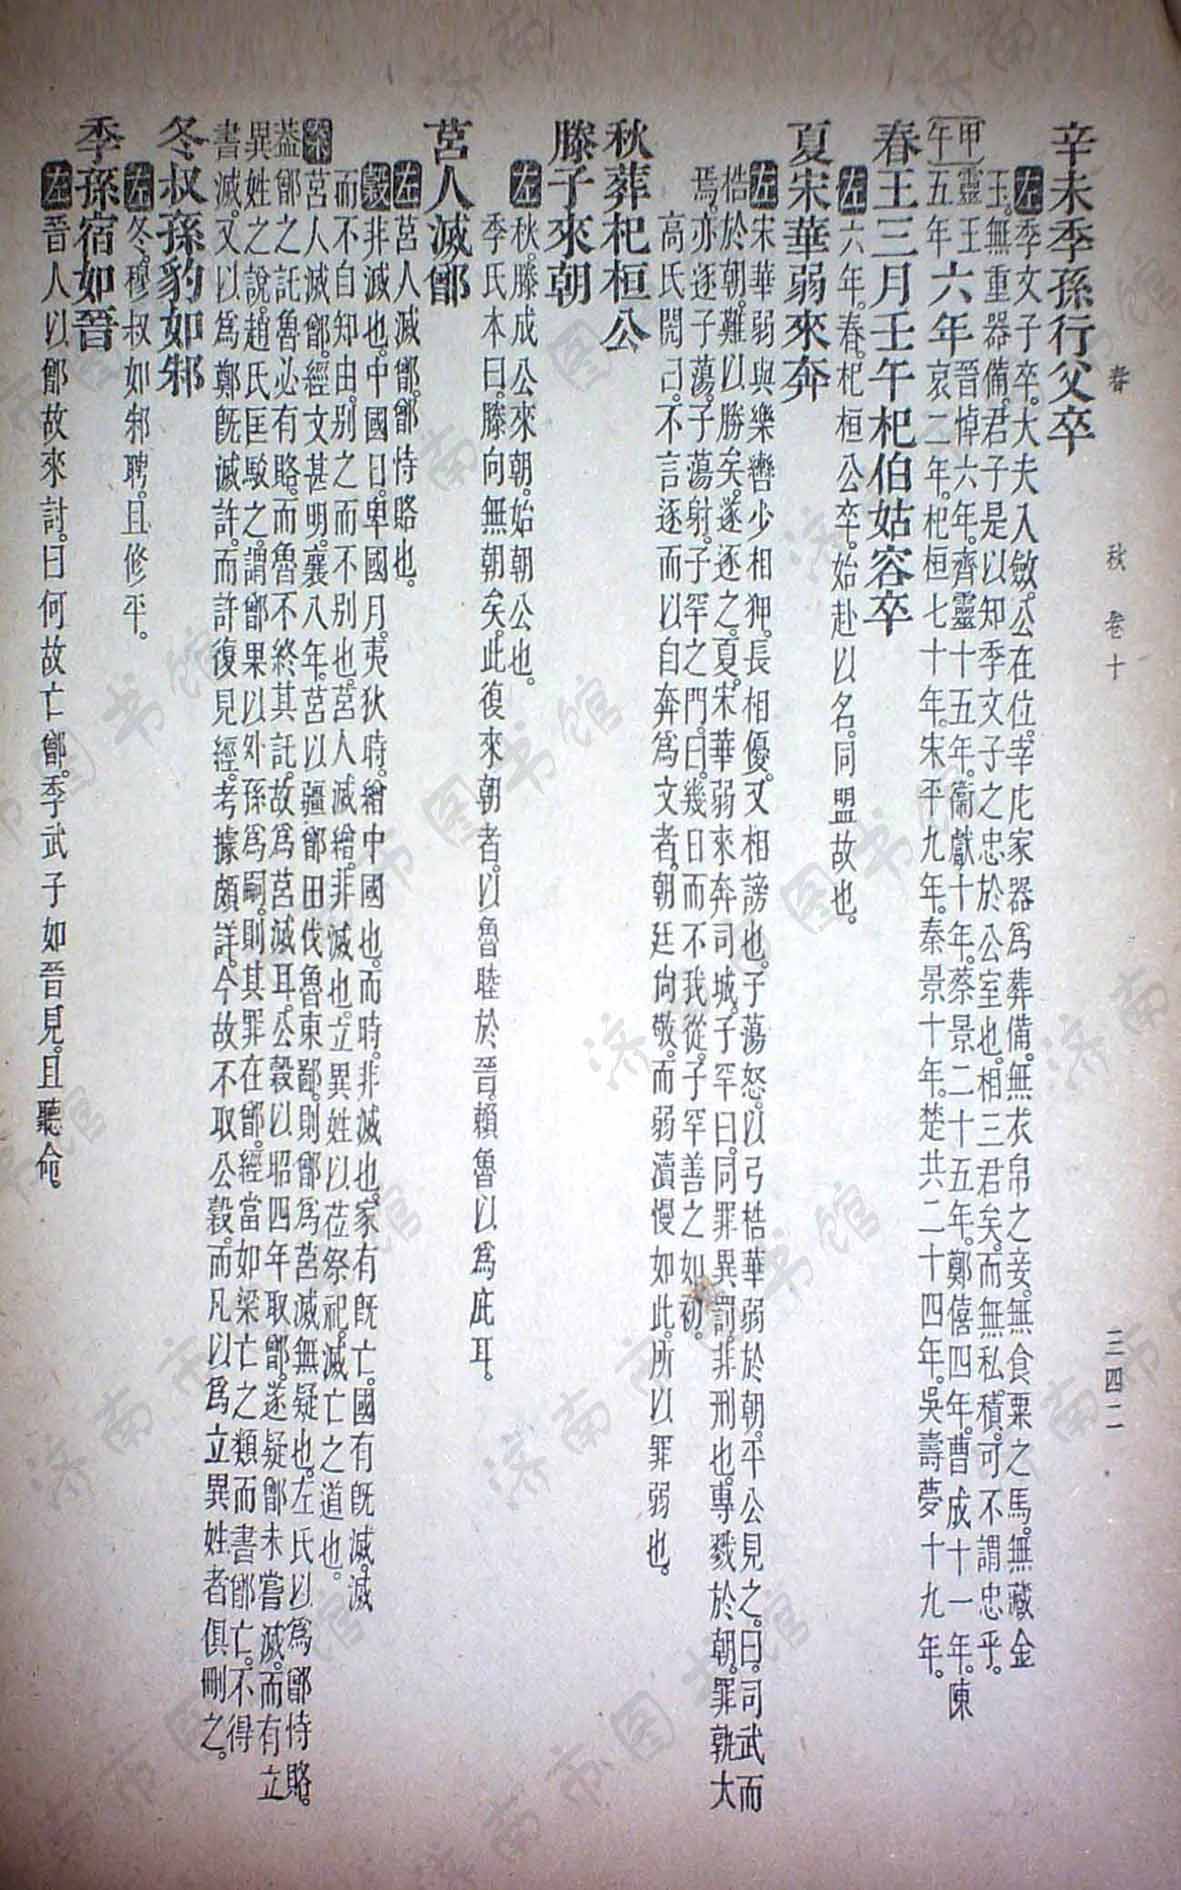 春 秋 卷十 三四二
辛未季孫行父卒
左季文子卒。大夫入斂。公在位。宰庀家器爲葬備。無衣帛之妾。無食粟之馬。無藏金
玉。無重器備。君子是以知季文子之忠於公室也。相三君矣。而無私積。可不謂忠乎。
甲午 靈王五年 六年 晉悼六年。齊靈十五年。衞獻十年。蔡景二十五年。鄭僖四年。曹成十一年。陳
哀二年。杞桓七十年。宋平九年。秦景十年。楚共二十四年。吳壽夢十九年。
春王三月壬午杞伯姑容卒
左六年。春。杞桓公卒。始赴以名。同盟故也。
夏宋華弱來奔
左宋華弱與樂轡少相狎。長相優。又相謗也。子蕩怒。以弓梏華弱於朝。平公見之。曰。司武而
梏於朝。難以勝矣。遂逐之。夏。宋華弱來奔。司城子罕曰。同罪異罰。非刑也。專戮於朝。罪孰大
焉。亦逐子蕩。子蕩射子罕之門。曰。幾日而不我從。子罕善之如初。
高氏閌曰。不言逐而以自奔爲文者。朝廷尙敬。而弱瀆慢如此。所以罪弱也。
秋葬杞桓公
滕子來朝
左秋。滕成公來朝。始朝公也。
季氏本曰。滕向無朝矣。此復來朝者。以魯睦於晉。賴魯以爲庇耳。
莒人滅鄫
左莒人滅鄫。鄫恃賂也。
穀非滅也。中國日。卑國月。夷狄時。繒中國也。而時。非滅也。家有旣亡。國有旣滅。滅
而不自知。由別之而不別也。莒人滅繒。非滅也。立異姓以莅祭祀。滅亡之道也。
案莒人滅鄫。經文甚明。襄八年。莒以疆鄫田伐魯東鄙。則鄫爲莒滅無疑也。左氏以爲鄫恃賂。
葢鄫之託魯。必有賂。而魯不終其託。故爲莒滅耳。公穀以昭四年取鄫。遂疑鄫未嘗滅。而有立
異姓之說。趙氏匡駮之。謂鄫果以外孫爲嗣。則其罪在鄫。經當如梁亡之類而書鄫亡。不得
書滅。又以爲鄭旣滅許。而許復見經。考據頗詳。今故不取公穀。而凡以爲立異姓者俱刪之。
冬叔孫豹如邾
左冬。穆叔如邾聘。且修平。
季孫宿如晉
左晉人以鄫故來討。曰何故亡鄫。季武子如晉見。且聽命。